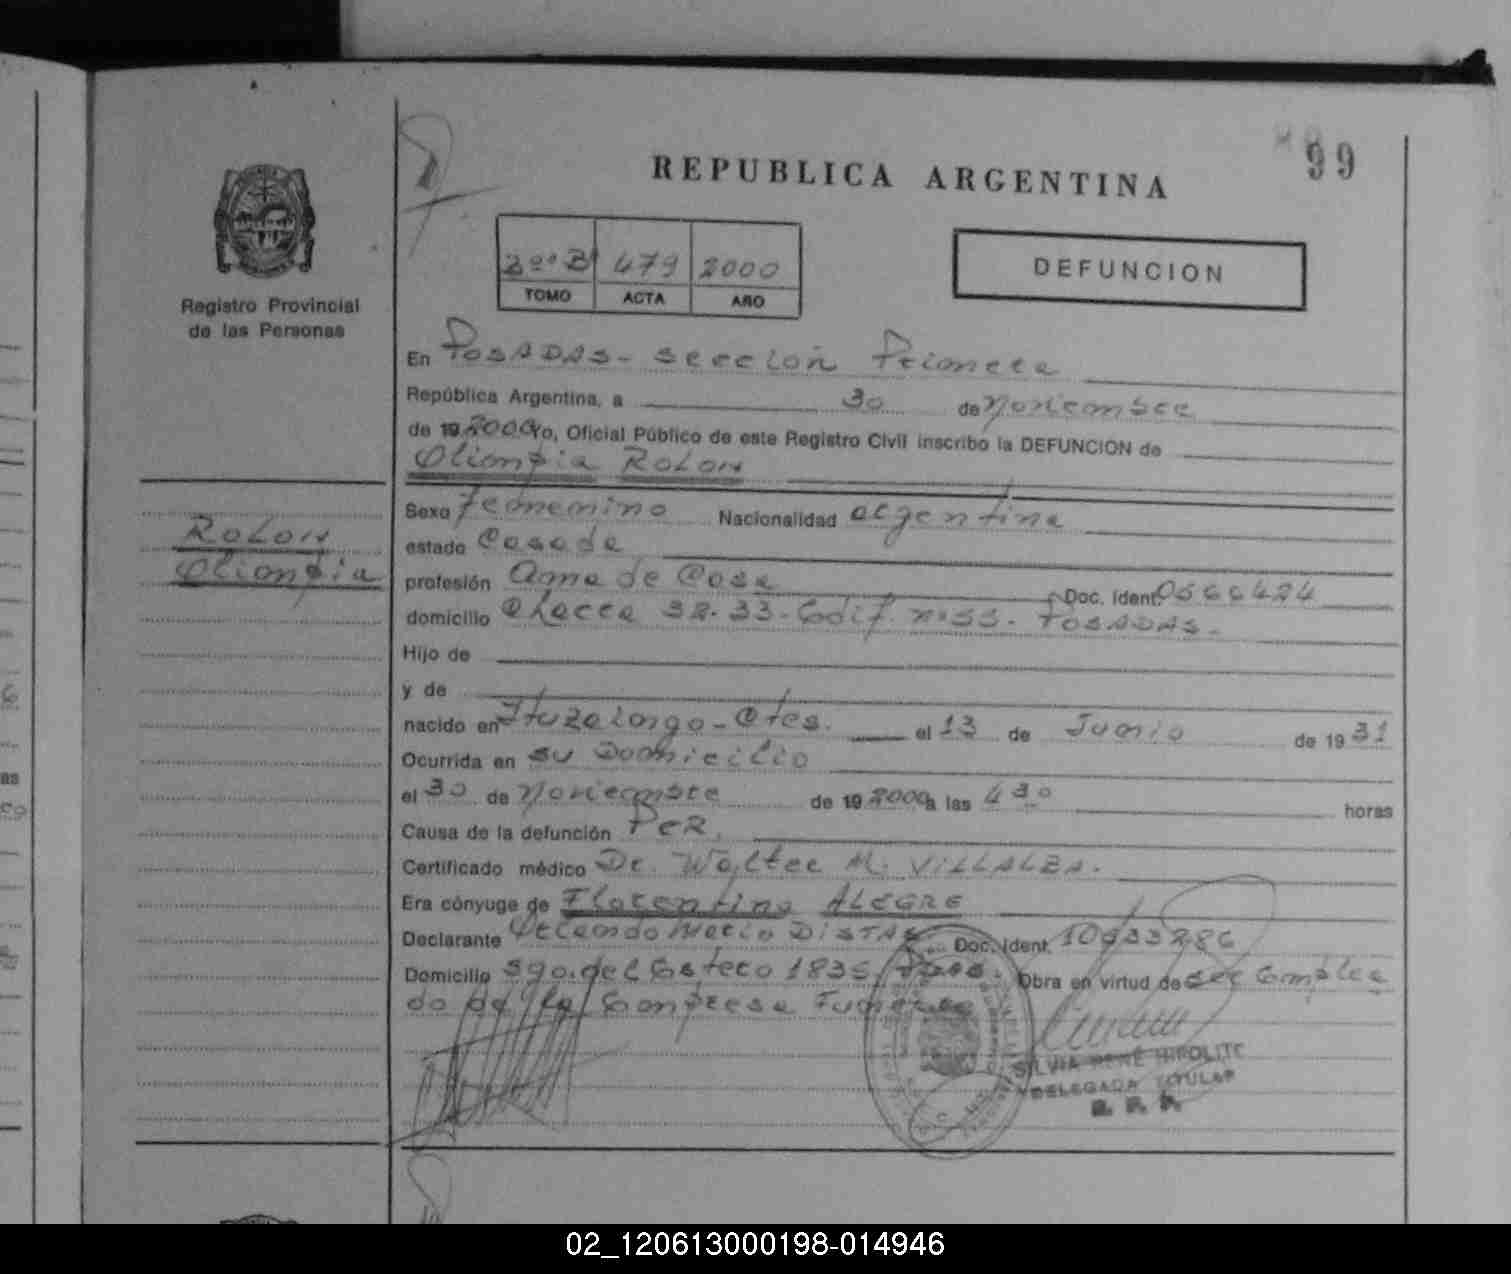 99
REPUBLICA ARGENTINA
Registro Provincial
de las Personas
479 2000
TOMO ACTA AÑO
DEFUNCION
En POSADAS - Sección Primera
República Argentina, a 30 de Noviembre
de 19 2000 Yo, Oficial Público de este Registro Civil inscribo la DEFUNCION de
Olimpia ROLON
ROLON
Olimpia
Sexo Femenino Nacionalidad argentina
estado Casada
profesión Ama de Casa Doc. Ident.
domicilio Chacra 32-33- Edif. POSADAS.
Hijo de
y de
nacido en Ituzaingo - Ctes. el 13 de Junio de 19 31
Ocurrida en su Domicilio
el 30 de Noviembre de 19 2000 a las 4 30 horas
Causa de la defunción PCR
Certificado médico Dr. Walter M. VILLALBA.
Era cónyuge de Florentino ALEGRE
Declarante Orlando Mario Doc. Ident.
Domicilio Sgo. del Estero 1835 Obra en virtud de ser Emplea
do de la Empresa
SILVIA RENÉ HIPOLITE
DELEGADA TITULAR
R. P. P.
02_120613000198-014946